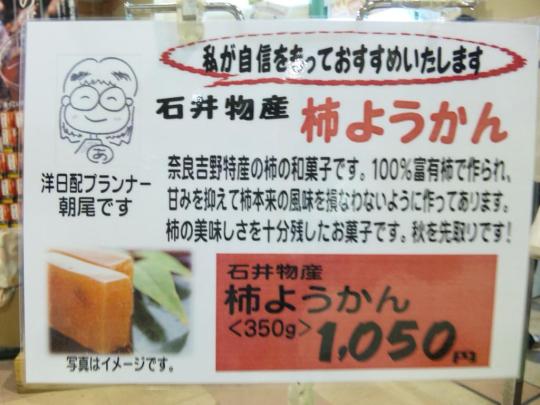 私が自信をもっておすすめいたします
あ
洋日配プランナー
朝尾です
石井物産 柿ようかん
奈良吉野特産の柿の和菓子です。100%富有柿で作られ、
甘みを抑えて柿本来の風味を損なわないように作ってあります。
柿の美味しさを十分残したお菓子です。秋を先取りです!
石井物産
柿ようかん
<350g> 1,050円
写真はイメージです。